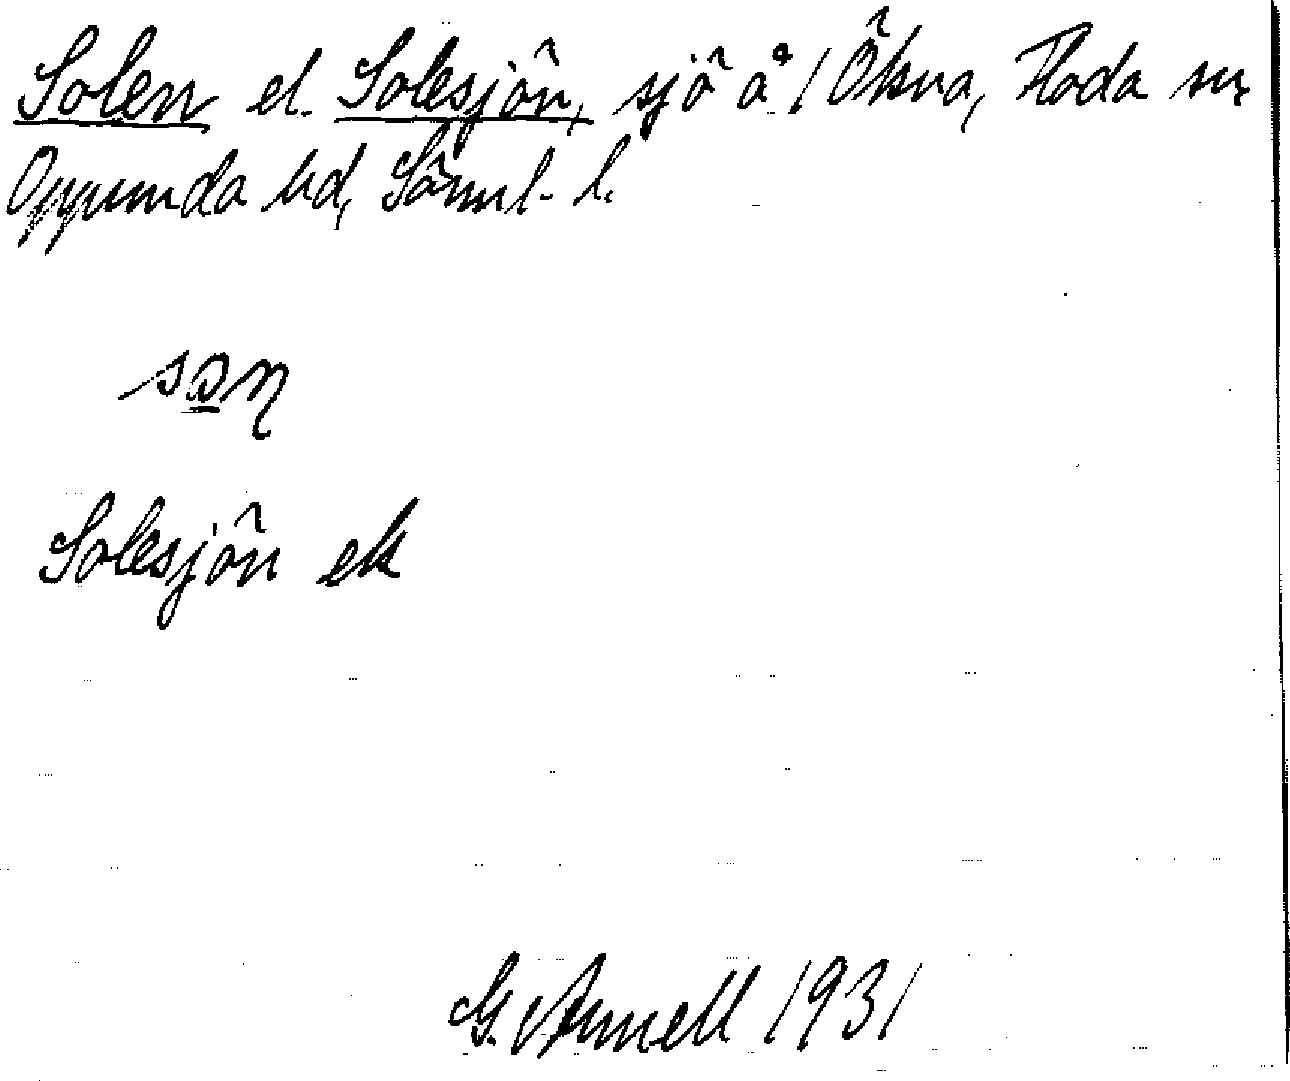 Solen el. Solesjön, sjö å /Öksna, Floda sn,
Oppunda hd, Söml. l.
Solesjön ek
G. Annell 1931